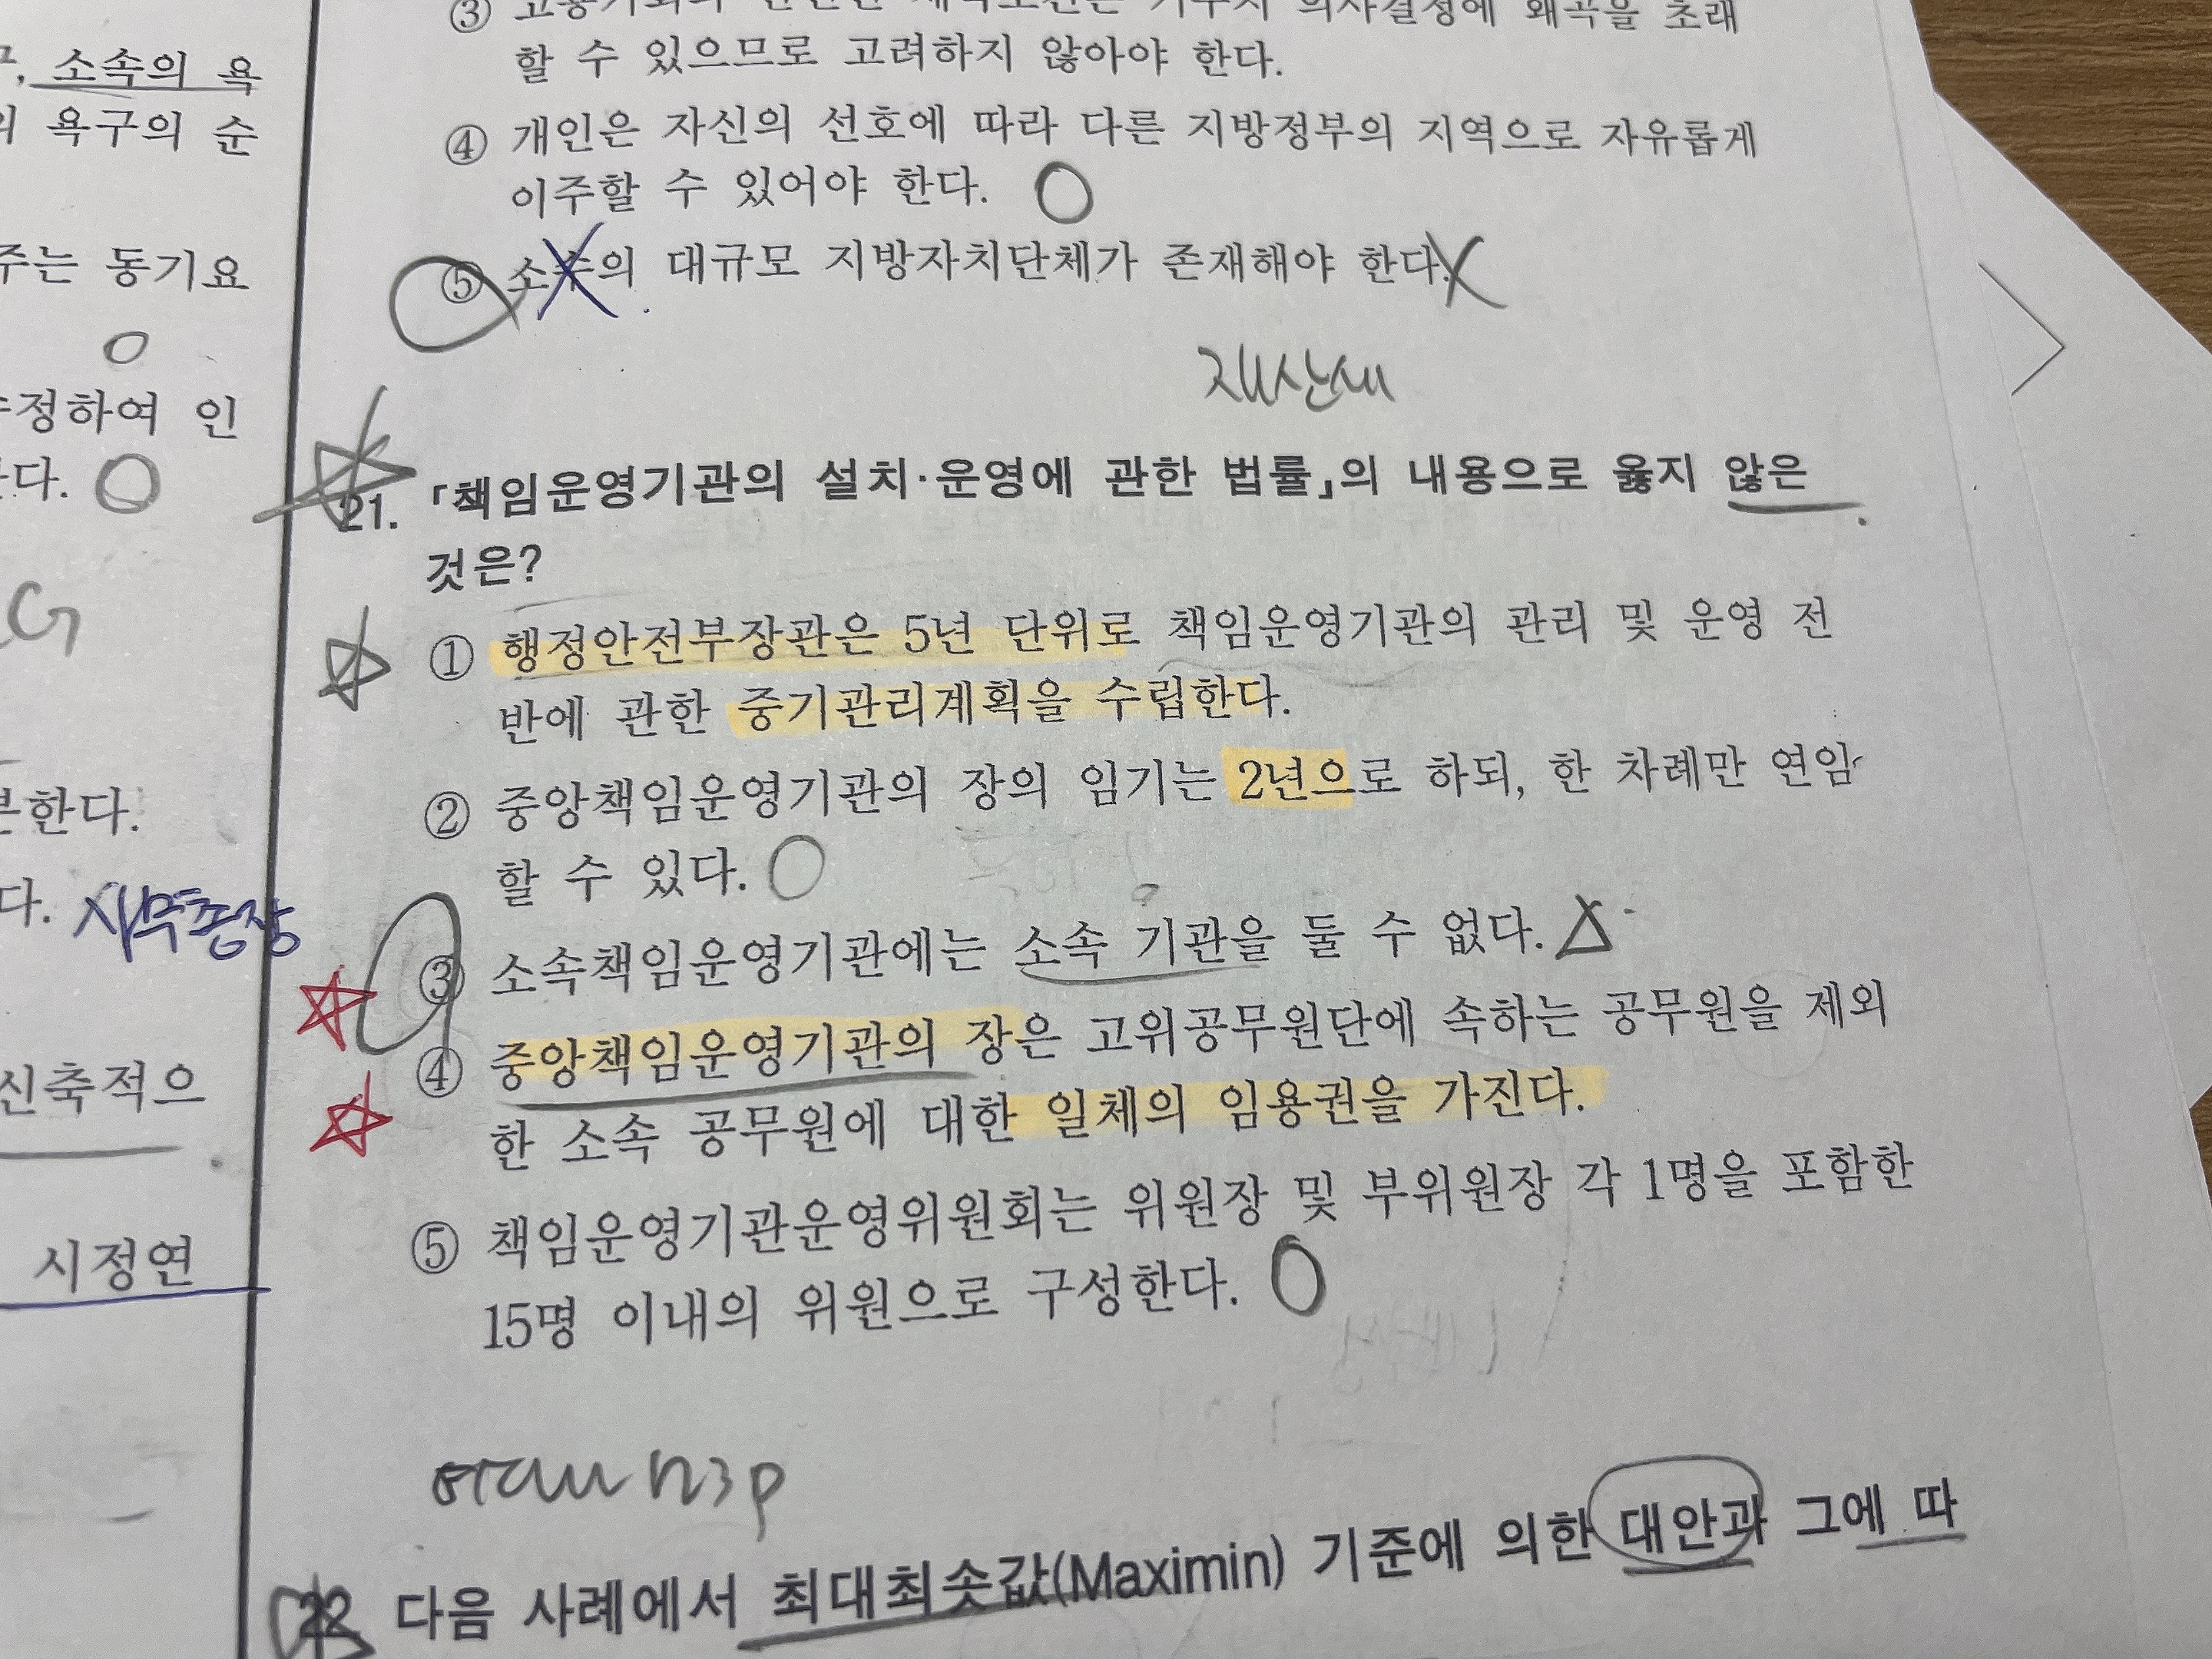 , 소속의 욕
욕구의 순
주는 동기요
정하여 인
다.
한다.
다. 사무총장
신축적으
시정연
할 수 있으므로 고려하지 않아야 한다.
④ 개인은 자신의 선호에 따라 다른 지방정부의 지역으로 자유롭게
이주할 수 있어야 한다.
⑤ 소수의 대규모 지방자치단체가 존재해야 한다.
재산세
21. 「책임운영기관의 설치·운영에 관한 법률」의 내용으로 옳지 않은
것은?
① 행정안전부장관은 5년 단위로 책임운영기관의 관리 및 운영 전
반에 관한 중기관리계획을 수립한다.
② 중앙책임운영기관의 장의 임기는 2년으로 하되, 한 차례만 연임
할 수 있다.
③ 소속책임운영기관에는 소속 기관을 둘 수 없다.
④ 중앙책임운영기관의 장은 고위공무원단에 속하는 공무원을 제외
한 소속 공무원에 대한 일체의 임용권을 가진다.
⑤ 책임운영기관운영위원회는 위원장 및 부위원장 각 1명을 포함한
15명 이내의 위원으로 구성한다.
123p
22 다음 사례에서 최대최솟값(Maximin) 기준에 의한 대안과 그에 따